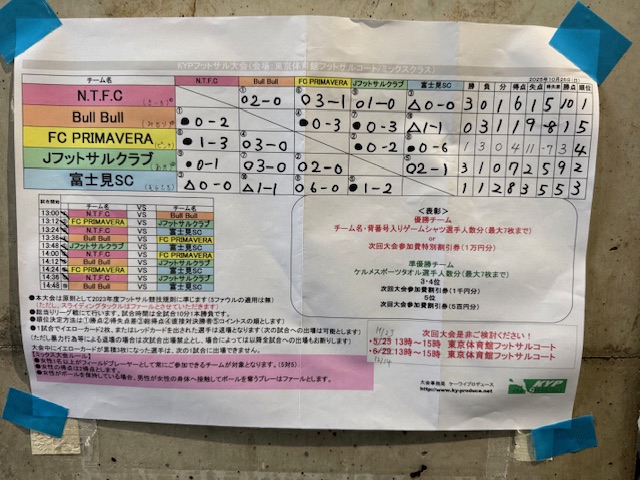 KYPフットサル大会(会場:東京体育館フットサルコート/ミックスクラス)
2025年10月25日(土)
チーム名 N.T.F.C Bull Bull FC PRIMAVERA Jフットサルクラブ 富士見SC 勝 負 分 得点 失点 得失差 勝点 順位
N.T.F.C ○2-0 ○3-1 ○1-0 △0-0 3 0 1 6 1 5 10 1
Bull Bull ●0-2 ●0-3 ●0-3 △1-1 0 3 1 1 9 -8 1 5
FC PRIMAVERA ●1-3 ○3-0 ●0-2 ●0-6 1 3 0 4 11 -7 3 4
Jフットサルクラブ ●0-1 ○3-0 ○2-0 ○2-1 3 1 0 7 2 5 9 2
富士見SC △0-0 △1-1 ○6-0 ●1-2 1 1 2 8 3 5 5 3
試合開始 チーム名 VS チーム名
13:00 N.T.F.C VS Bull Bull
13:12 FC PRIMAVERA VS Jフットサルクラブ
13:24 N.T.F.C VS 富士見SC
13:36 Bull Bull VS FC PRIMAVERA
13:48 Jフットサルクラブ VS 富士見SC
14:00 N.T.F.C VS FC PRIMAVERA
14:12 Bull Bull VS Jフットサルクラブ
14:24 FC PRIMAVERA VS 富士見SC
14:36 N.T.F.C VS Jフットサルクラブ
14:48 Bull Bull VS 富士見SC
<表彰>
優勝チーム
チーム名・背番号入りゲームシャツ選手人数分(最大7枚まで)
or
次回大会参加費特別割引券(1万円分)
準優勝チーム
ケルメスポーツタオル選手人数分(最大7枚まで)
3・4位
次回大会参加費割引券(1千円分)
5位
次回大会参加費割引券(5百円分)
●本大会は原則として2023年度フットサル競技規則に準じます(5ファウルの適用は無)
(ただし、スライディングタックルはファールとさせていただきます)
●総当りリーグ戦にて行います。試合時間は全試合10分1本勝負です。
●順位決定方法は①勝点②得失点差③総得点④直接対決勝者⑤コイントスの順とします。
●1試合でイエローカード2枚、またはレッドカードを出された選手は退場となります(次の試合への出場は可能とします)
(ただし暴力行為等による退場の場合は次試合出場禁止とし、場合によっては以降全試合への出場もお断りします)
大会中にイエローカードが累積3枚になった選手は、次の1試合に出場できません。
【ミックス大会ルール】
●女性1名以上がフィールドプレーヤーとして常にご参加できるチームが対象となります。(5対5)
●女性の得点は2得点とします。
●女性がボールを保持している場合、男性が女性の身体へ接触してボールを奪うプレーはファールとします。
次回大会是非ご検討ください!
11/23
・5/25 13時~15時 東京体育館フットサルコート
・6/29 13時~15時 東京体育館フットサルコート
12/14
大会事務局 ケーワイプロデュース
http://www.ky-produce.net
KYP